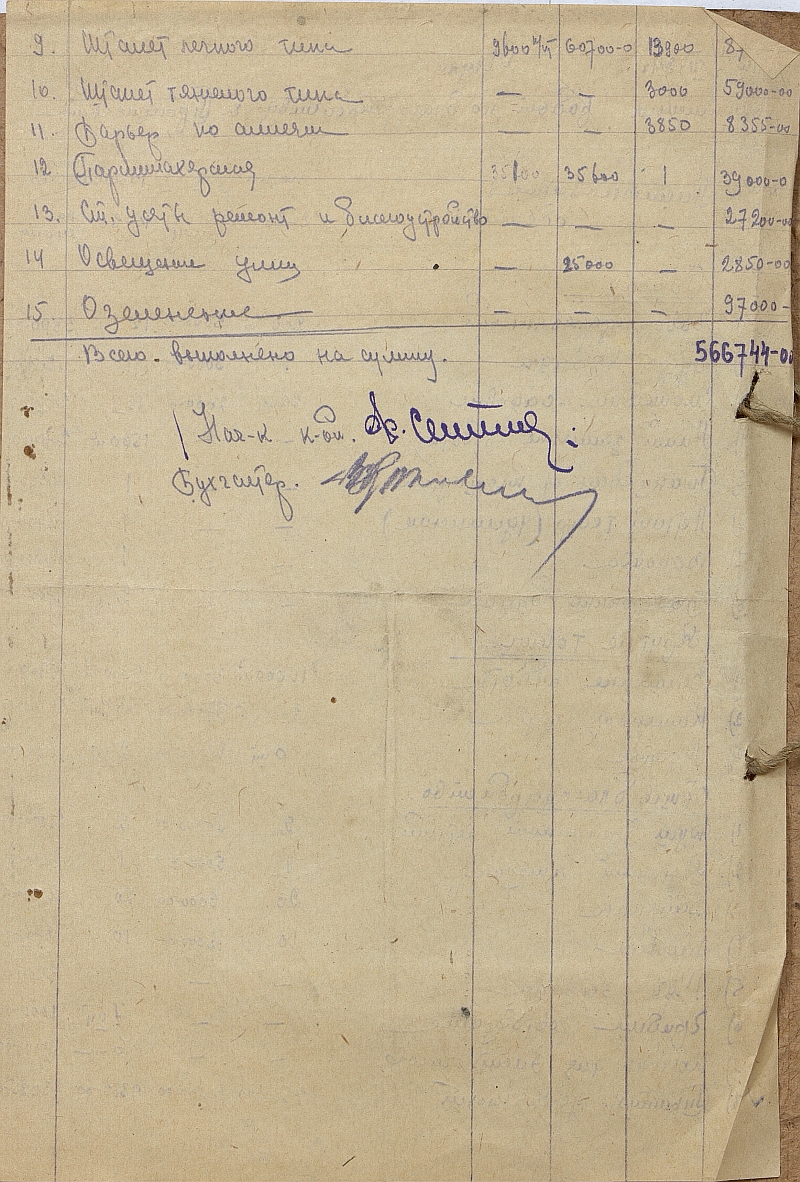 9. Штакет легкого типа 9600 м/п 60700-0 13900 87
10. Штакет тяжелого типа — — 3000 59000-00
11. Барьер по аллеям — — 3850 8355-00
12 Парикмахерская 35100 35600 1 39000-0
13. Ст. ремонт и благоустройство — — — 27200-00
14 Освещение улиц — 25000 — 2850-00
15. Озеленение — — — 97000-
Всего выполнено на сумму. 566744-00
Нач-к к-ом.
Бухгалтер.